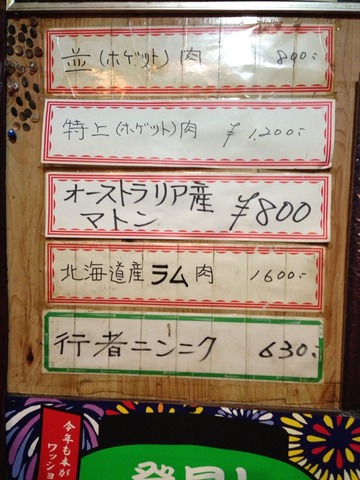 並(ホゲット)肉 800:-
特上(ホゲット)肉 ¥1,200:-
オーストラリア産
マトン ¥800
北海道産ラム肉 1600:-
行者ニンニク 630:-
今年も本が
ワッショ
発見!